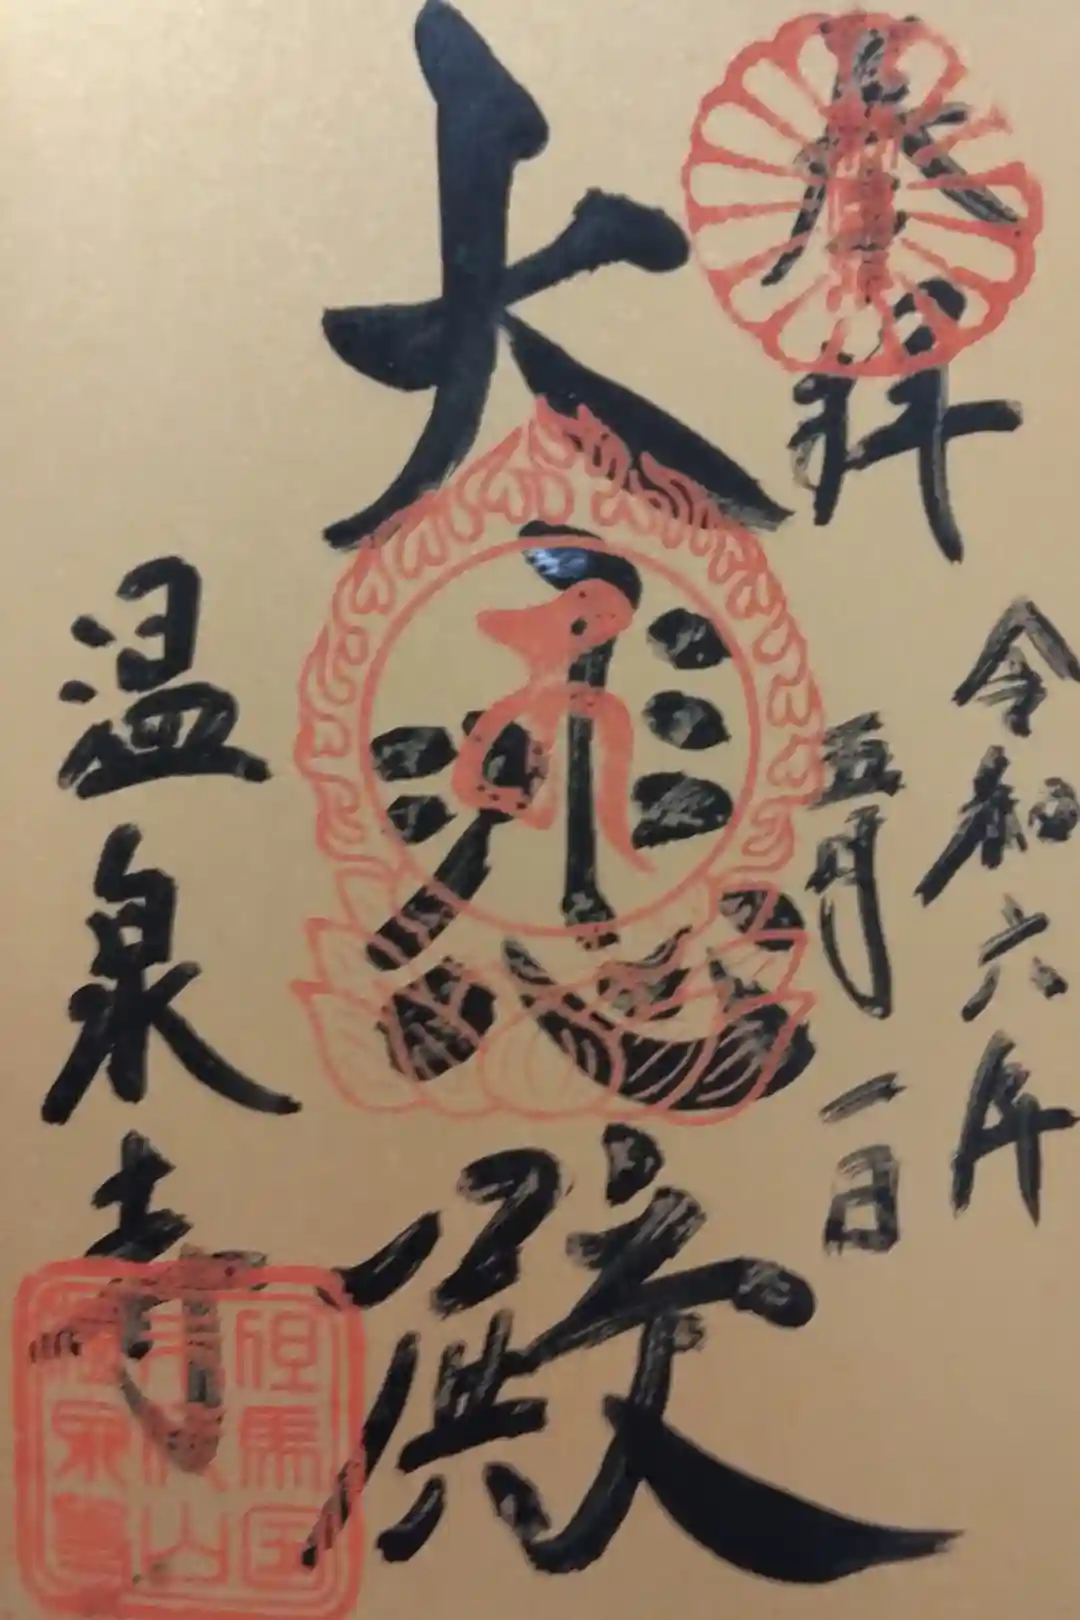 奉拝
令和六年
五月一日
大悲殿
温泉寺
但馬国
末代山
温泉寺